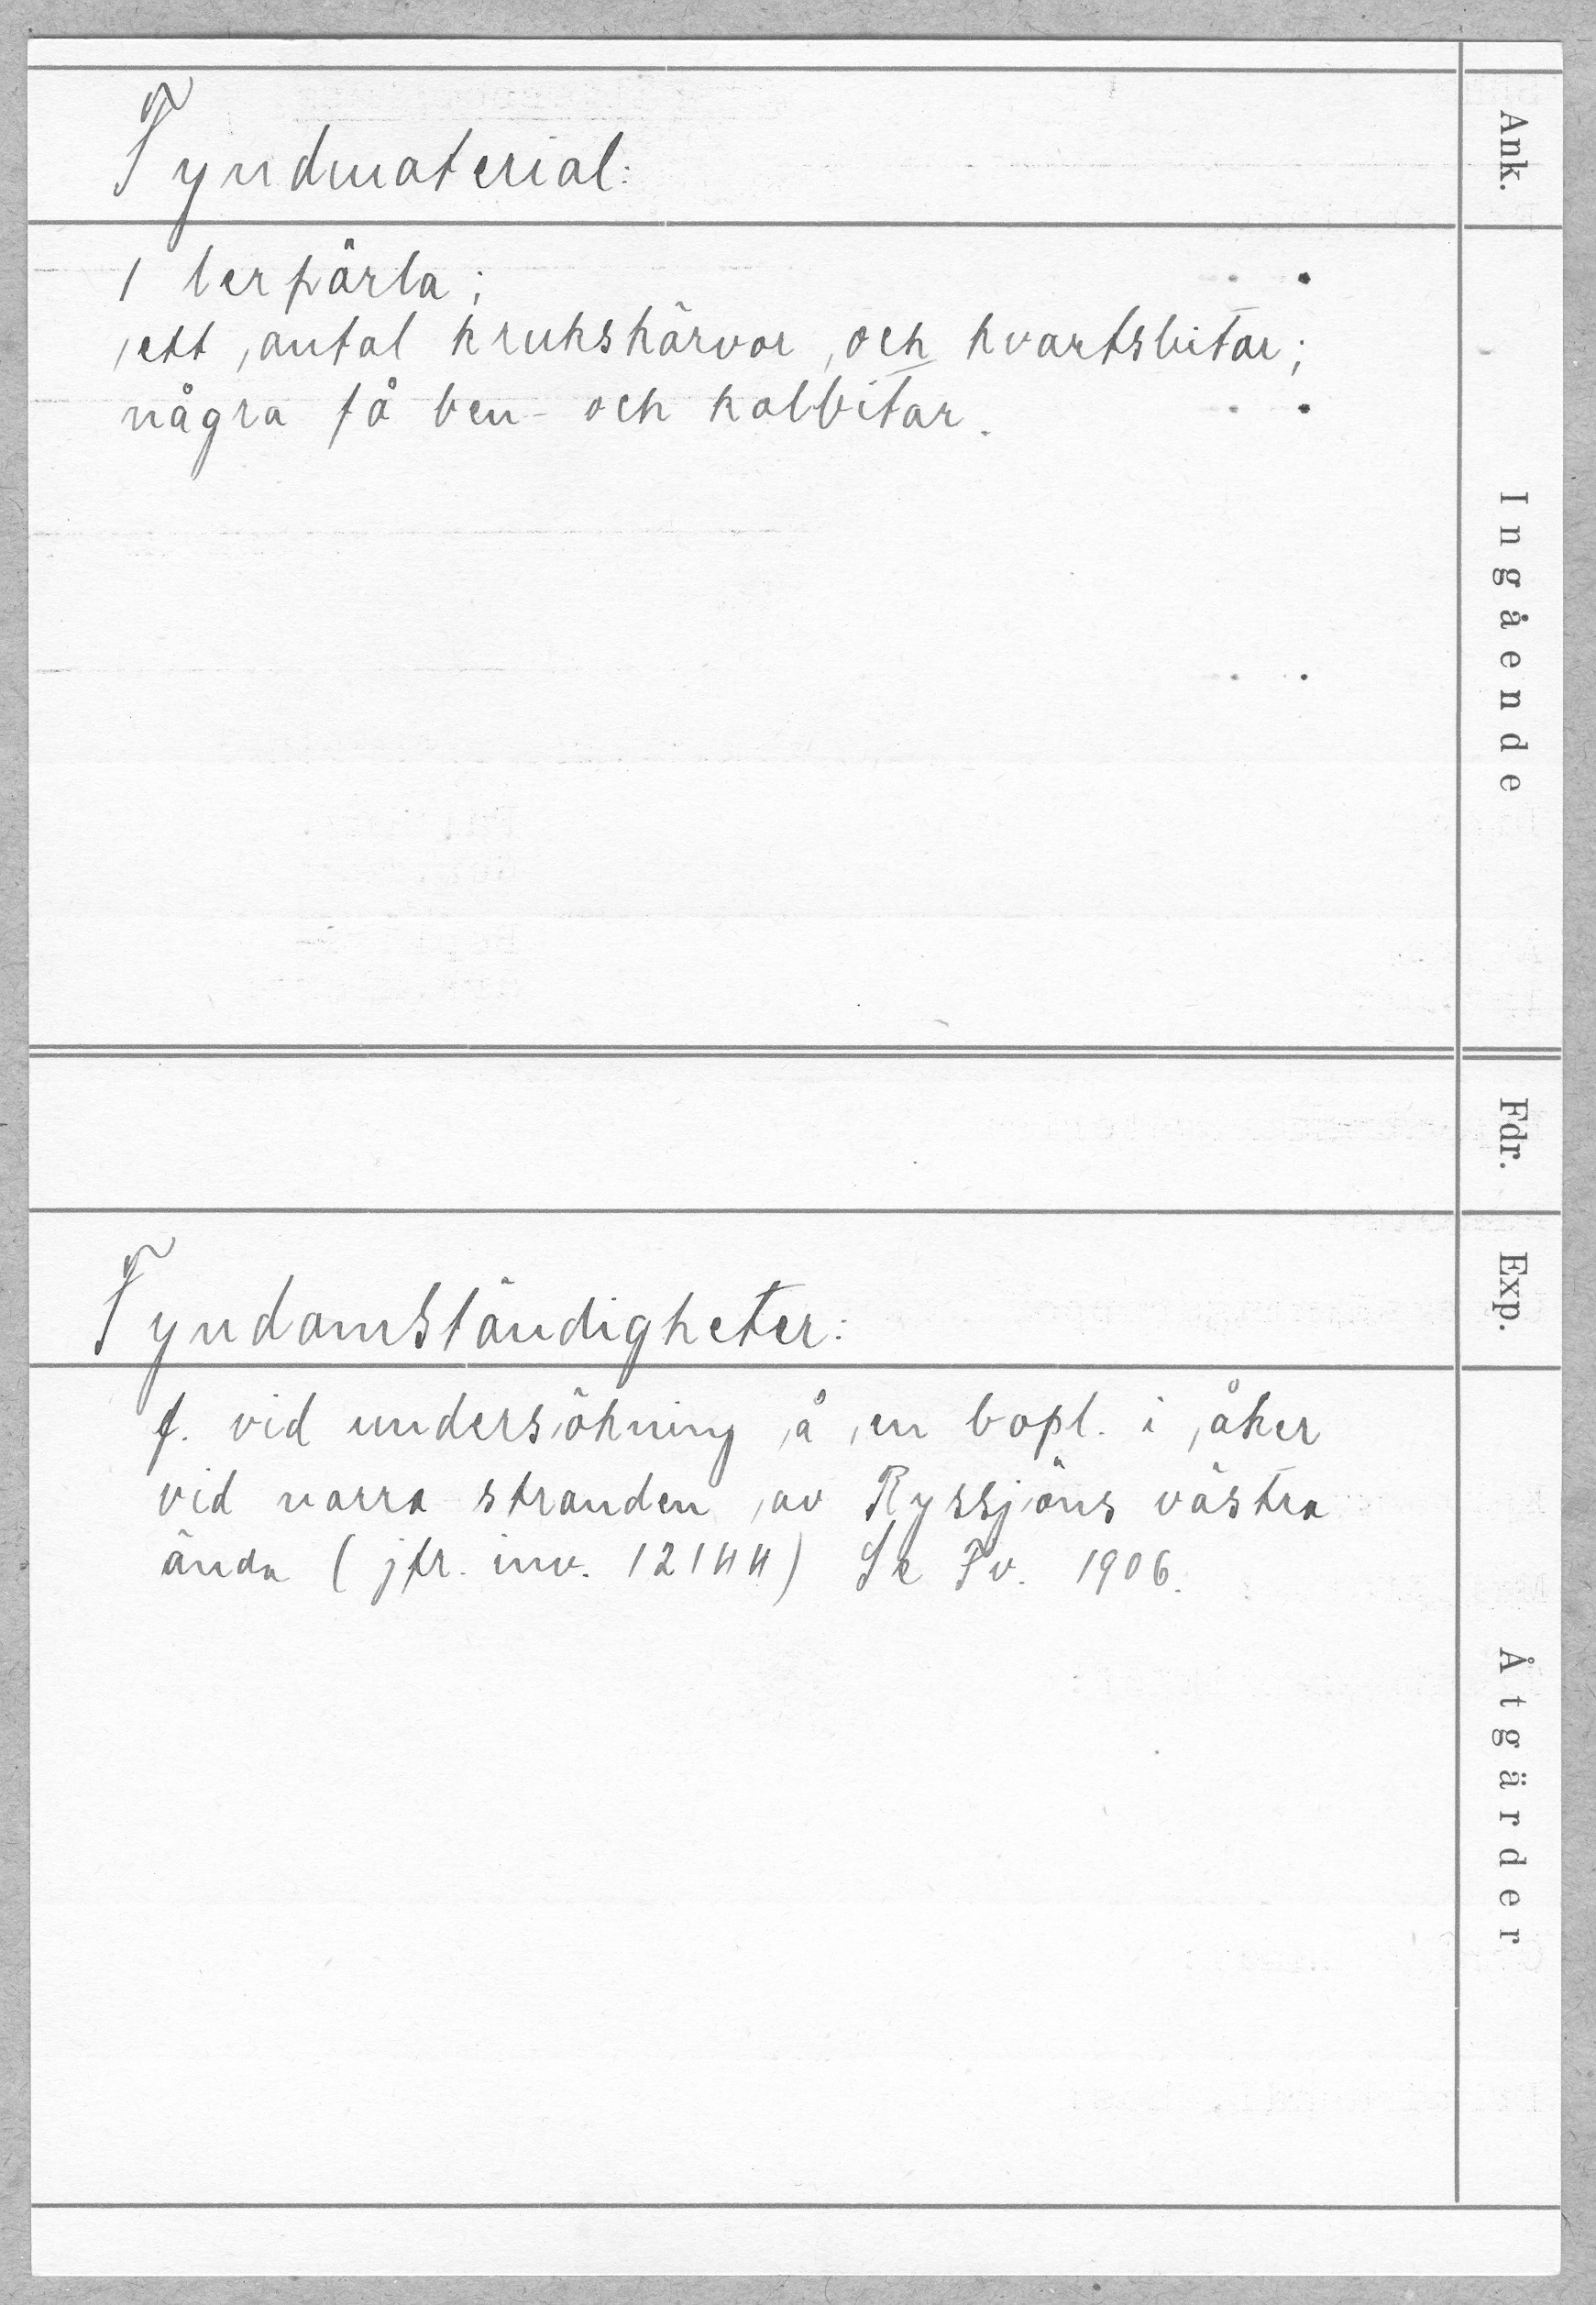 Ank.
Fyndmaterial:
Ingående
1 lerpärla;
ett antal krukskärvor och kvartsbitar;
några få ben- och kolbitar.
Fdr.
Exp.
Fyndomständigheter:
Åtgärder
f. vid undersökning å en bopl. i åker
vid norra stranden av Ryssjöns västra
ända (jfr. inv. 12144) Se Fv. 1906.